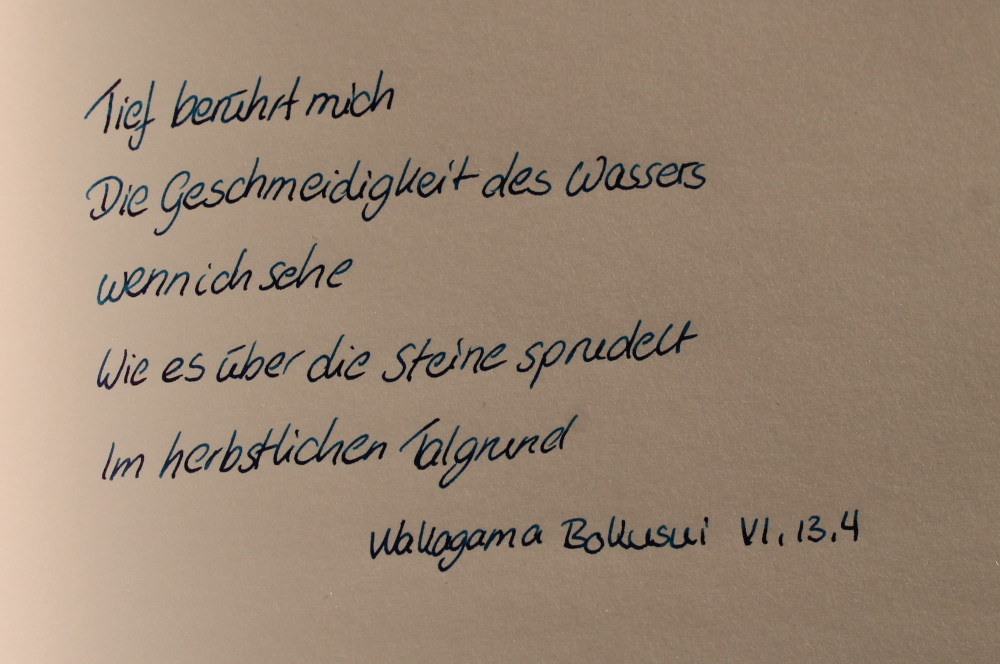 Tief berührt mich
Die Geschmeidigkeit des Wassers
wenn ich sehe
Wie es über die Steine sprudelt
Im herbstlichen Talgrund
Wakagama Bokusui VI, 13, 4